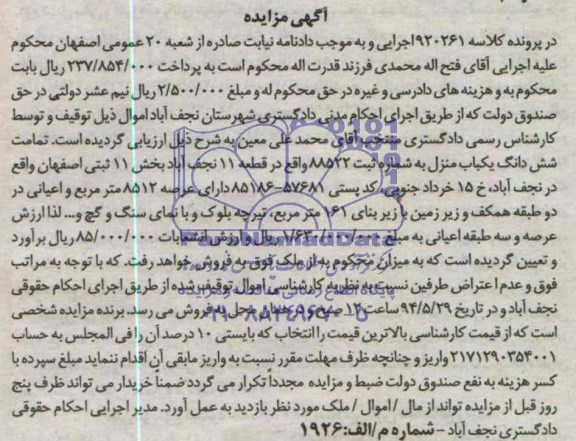 آگهی مزایده
در پرونده کلاسه ۹۲۰۲۶۱اجرایی و به موجب دادنامه نیابت صادره از شعبه ۲۰ عمومی اصفهان محکوم
علیه اجرایی آقای فتح اله محمدی فرزند قدرت اله محکوم است به پرداخت ۲۳۷/۸۵۴/۰۰۰ ریال بابت
محکوم به و هزینه های دادرسی و غیره در حق محکوم له و مبلغ ۲/۵۰۰/۰۰۰ ریال نیم عشر دولتی در حق
صندوق دولت که از طریق اجرای احکام مدنی دادگستری شهرستان نجف آباد اموال ذیل توقیف و توسط
کارشناس رسمی دادگستری منتخب آقای محمد علی معین به شرح ذیل ارزیابی گردیده است. تمامت
شش دانگ یکباب منزل به شماره ثبت ۸۸۵۲۲ واقع در قطعه ۱۱ نجف آباد بخش ۱۱ ثبتی اصفهان واقع
در نجف آباد، خ ۱۵ خرداد جنوبی، کد پستی ۵۷۶۸۱-۸۵۱۸۶ دارای عرصه ۸۵۱۲ متر مربع و اعیانی در
دو طبقه همکف و زیر زمین با زیر بنای ۱۶۱ متر مربع، تیرچه بلوک و با نمای سنگ و گچ و... لذا ارزش
عرصه و سه طبقه اعیانی به مبلغ ریال و ارزش انشعابات ۸۵/۰۰۰/۰۰۰ ریال برآورد
و تعیین گردیده است که به میزان محکوم به از ملک فوق به فروش خواهد رفت. که با توجه به مراتب
فوق و عدم اعتراض طرفین نسبت به نظریه کارشناسی اموال توقیف شده از طریق اجرای احکام حقوقی
نجف آباد و در تاریخ ۹۴/۵/۲۹ ساعت ۱۲ صبح در محل به فروش می رسد. برنده مزایده شخصی
است که از قیمت کارشناسی بالاترین قیمت را انتخاب که بایستی ۱۰ درصد آن را فی المجلس به حساب
۲۱۷۱۲۹۰۳۵۴۰۰۱ واریز و چنانچه ظرف مهلت مقرر نسبت به واریز مابقی آن اقدام ننماید مبلغ سپرده با
کسر هزینه به نفع صندوق دولت ضبط و مزایده مجدداً تکرار می گردد ضمناً خریدار می تواند ظرف پنج
روز قبل از مزایده تواند از مال / اموال / ملک مورد نظر بازدید به عمل آورد. مدیر اجرایی احکام حقوقی
دادگستری نجف آباد - شماره م/الف: ۱۹۲۶